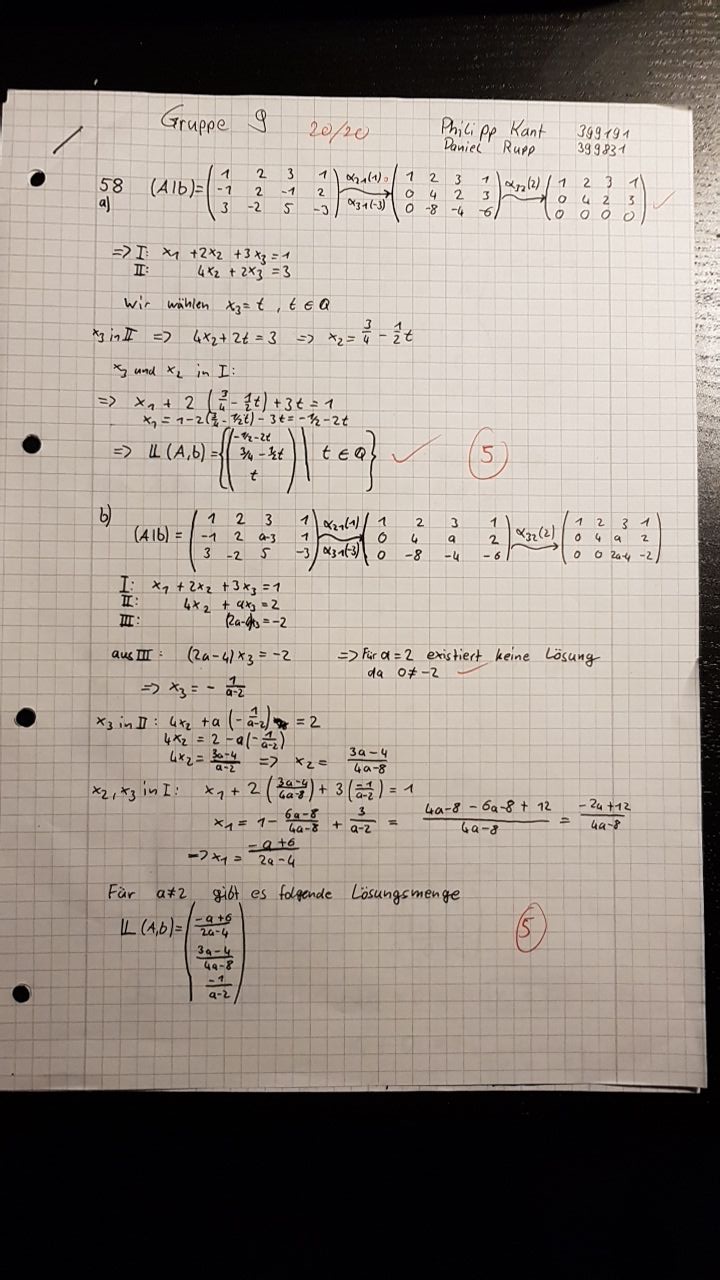 Gruppe 9 20/20 Philipp Kant 399191
Daniel Rupp 399831
58 a) (A|b) = ( 1 2 3 1 ; -1 2 -1 2 ; 3 -2 5 -3 ) α21(1), α31(-3) → ( 1 2 3 1 ; 0 4 2 3 ; 0 -8 -4 -6 ) α32(2) → ( 1 2 3 1 ; 0 4 2 3 ; 0 0 0 0 ) ✓
=> I: x1 + 2x2 + 3x3 = 1
II: 4x2 + 2x3 = 3
Wir wählen x3 = t , t ∈ Q
x3 in II => 4x2 + 2t = 3 => x2 = 3/4 - 1/2 t
x3 und x2 in I:
=> x1 + 2 (3/4 - 1/2 t) + 3t = 1
x1 = 1 - 2(3/4 - 1/2 t) - 3t = -1/2 - 2t
=> L(A,b) = { ( -1/2 - 2t ; 3/4 - 1/2 t ; t ) | t ∈ Q } ✓ 5
b) (A|b) = ( 1 2 3 1 ; -1 2 a-3 1 ; 3 -2 5 -3 ) α21(1), α31(-3) → ( 1 2 3 1 ; 0 4 a 2 ; 0 -8 -4 -6 ) α32(2) → ( 1 2 3 1 ; 0 4 a 2 ; 0 0 2a-4 -2 )
I: x1 + 2x2 + 3x3 = 1
II: 4x2 + ax3 = 2
III: (2a-4)x3 = -2
aus III: (2a-4)x3 = -2 => Für a = 2 existiert keine Lösung
da 0 ≠ -2 ✓
=> x3 = - 1/(a-2)
x3 in II: 4x2 + a (- 1/(a-2)) = 2
4x2 = 2 - a(- 1/(a-2))
4x2 = (3a-4)/(a-2) => x2 = (3a-4)/(4a-8)
x2, x3 in I: x1 + 2 ((3a-4)/(4a-8)) + 3 (-1/(a-2)) = 1
x1 = 1 - (6a-8)/(4a-8) + 3/(a-2) = (4a-8 - 6a-8 + 12)/(4a-8) = (-2a+12)/(4a-8)
=> x1 = (-a+6)/(2a-4)
Für a≠2 gibt es folgende Lösungsmenge
L(A,b) = ( (-a+6)/(2a-4) ; (3a-4)/(4a-8) ; -1/(a-2) ) 5